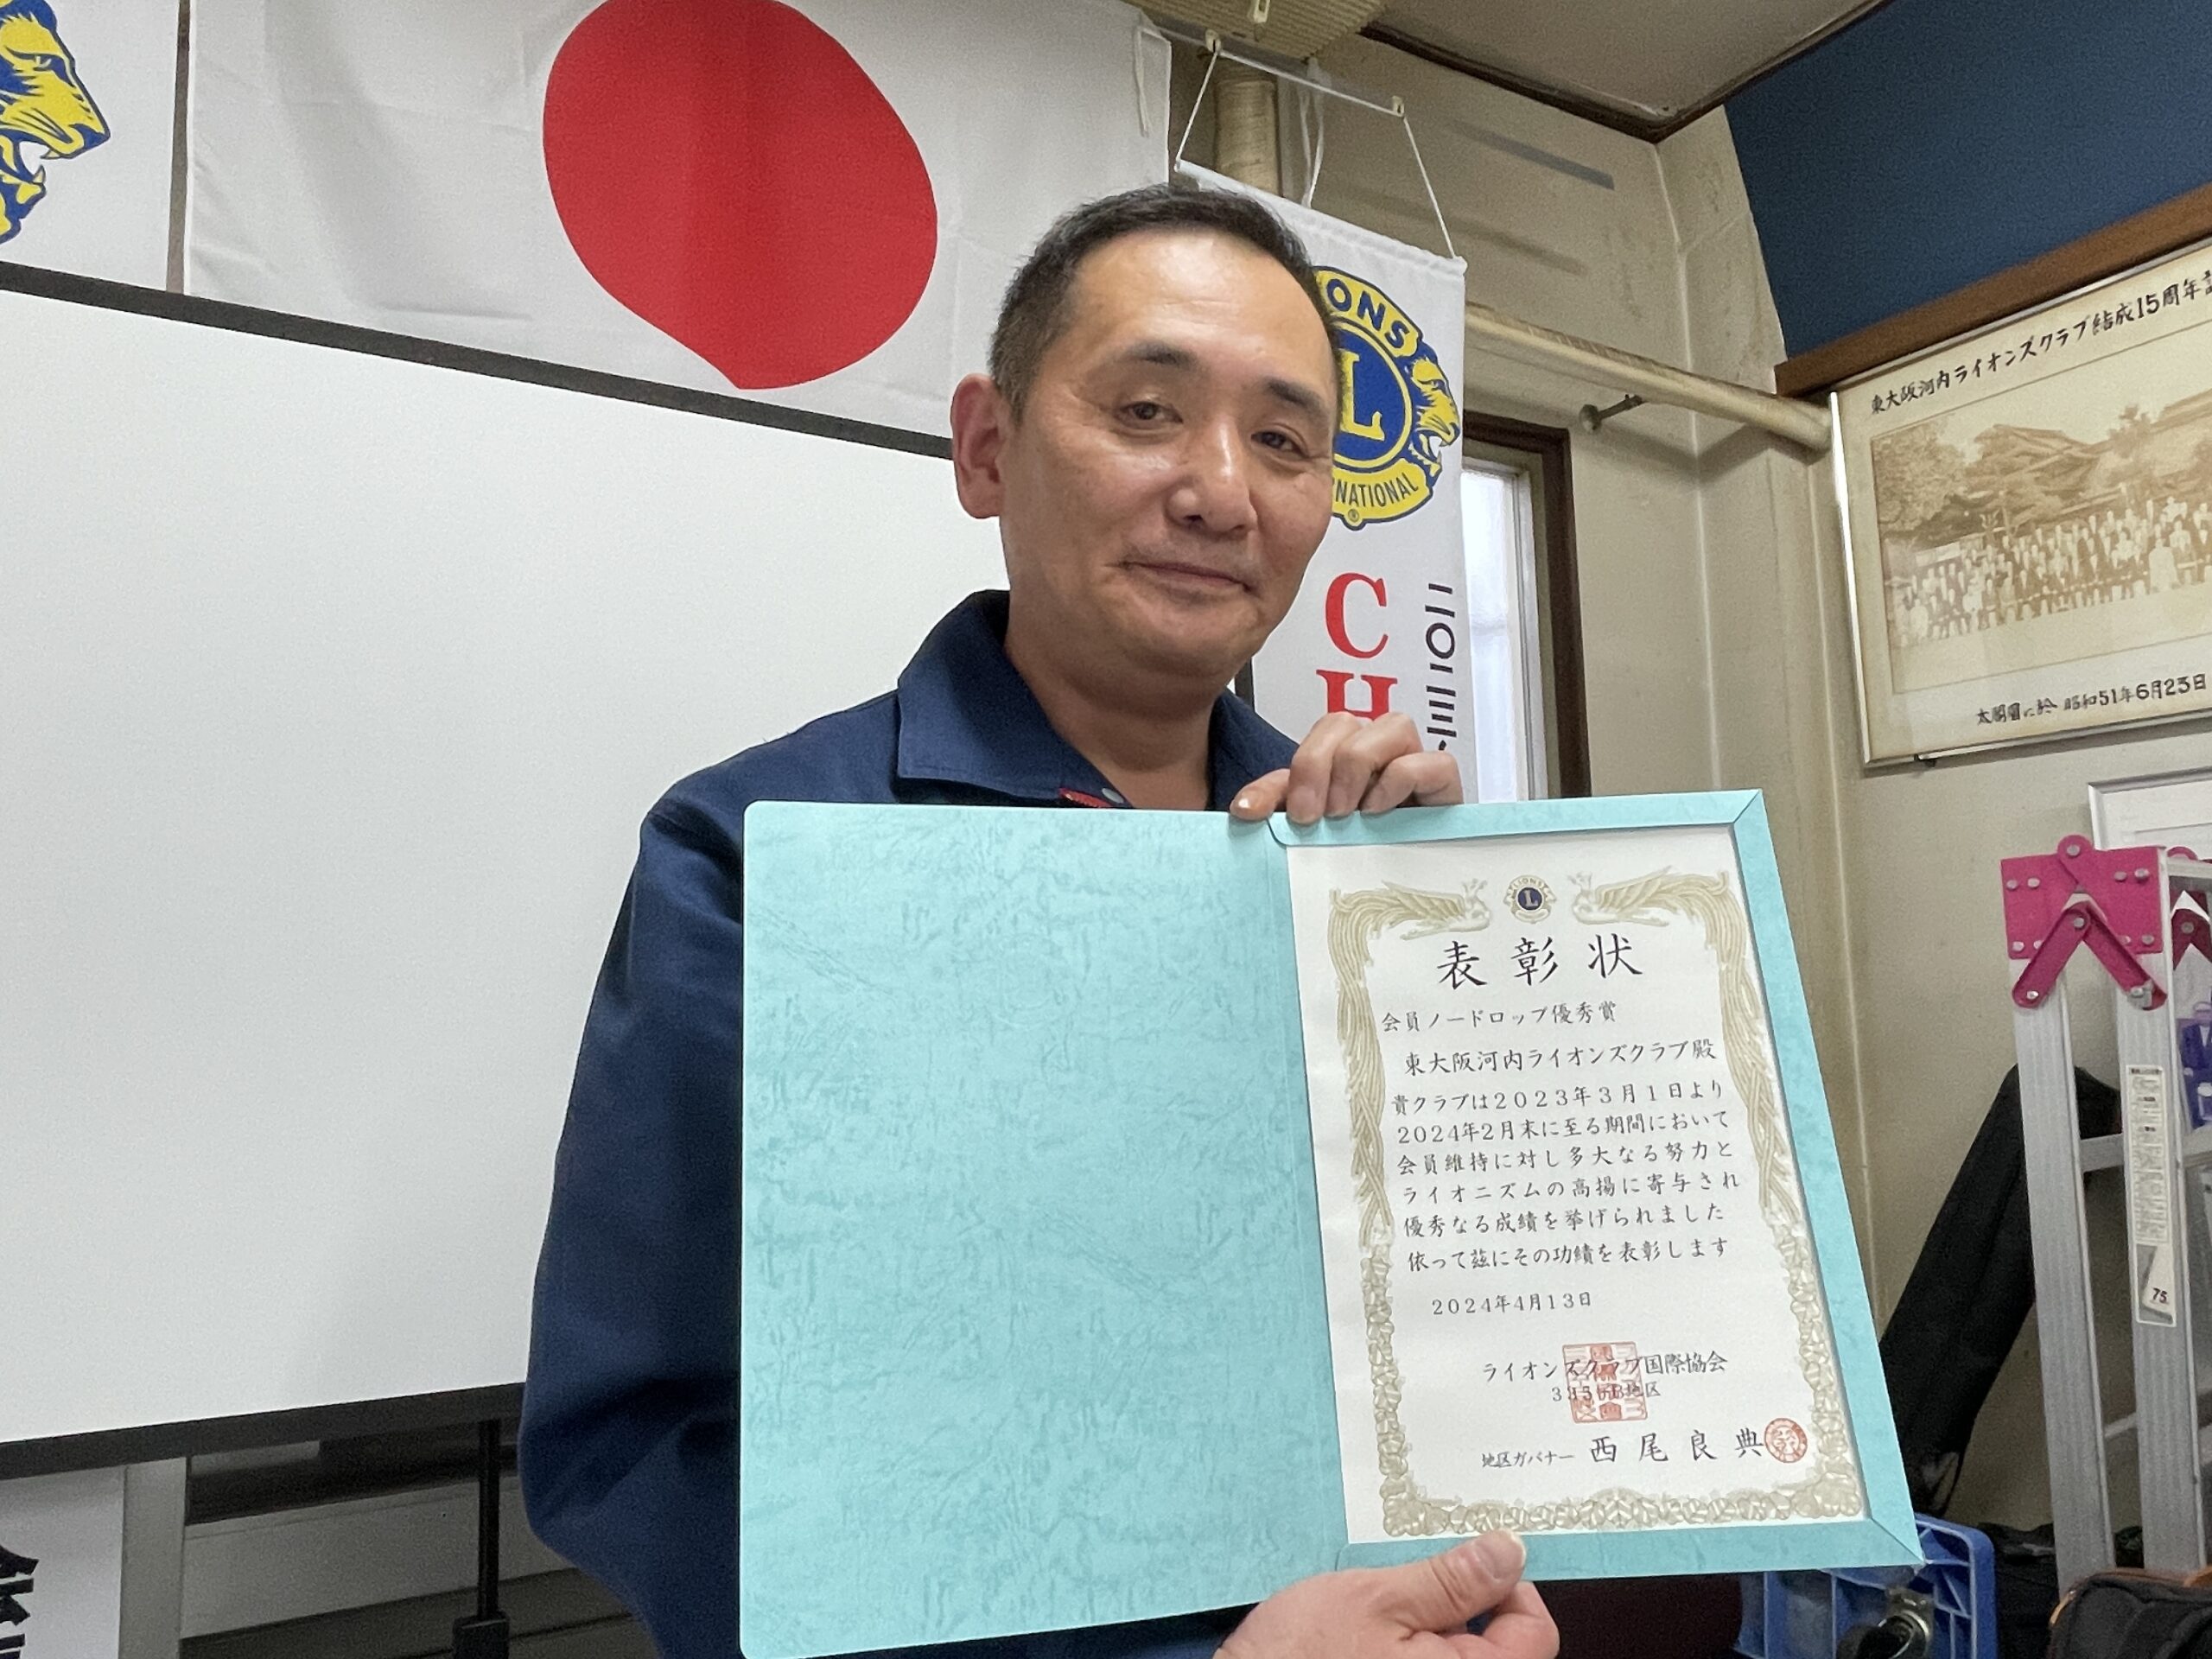 LIONS
L
INTERNATIONAL
CH
東大阪河内ライオンズクラブ結成15周年
太閤園に於 昭和51年6月23日
LIONS
L
表彰状
会員ノードロップ優秀賞
東大阪河内ライオンズクラブ殿
貴クラブは2023年3月1日より
2024年2月末に至る期間において
会員維持に対し多大なる努力と
ライオニズムの高揚に寄与され
優秀なる成績を挙げられました
依って茲にその功績を表彰します
2024年4月13日
ライオンズクラブ国際協会
335-B地区
地区ガバナー 西尾良典
75